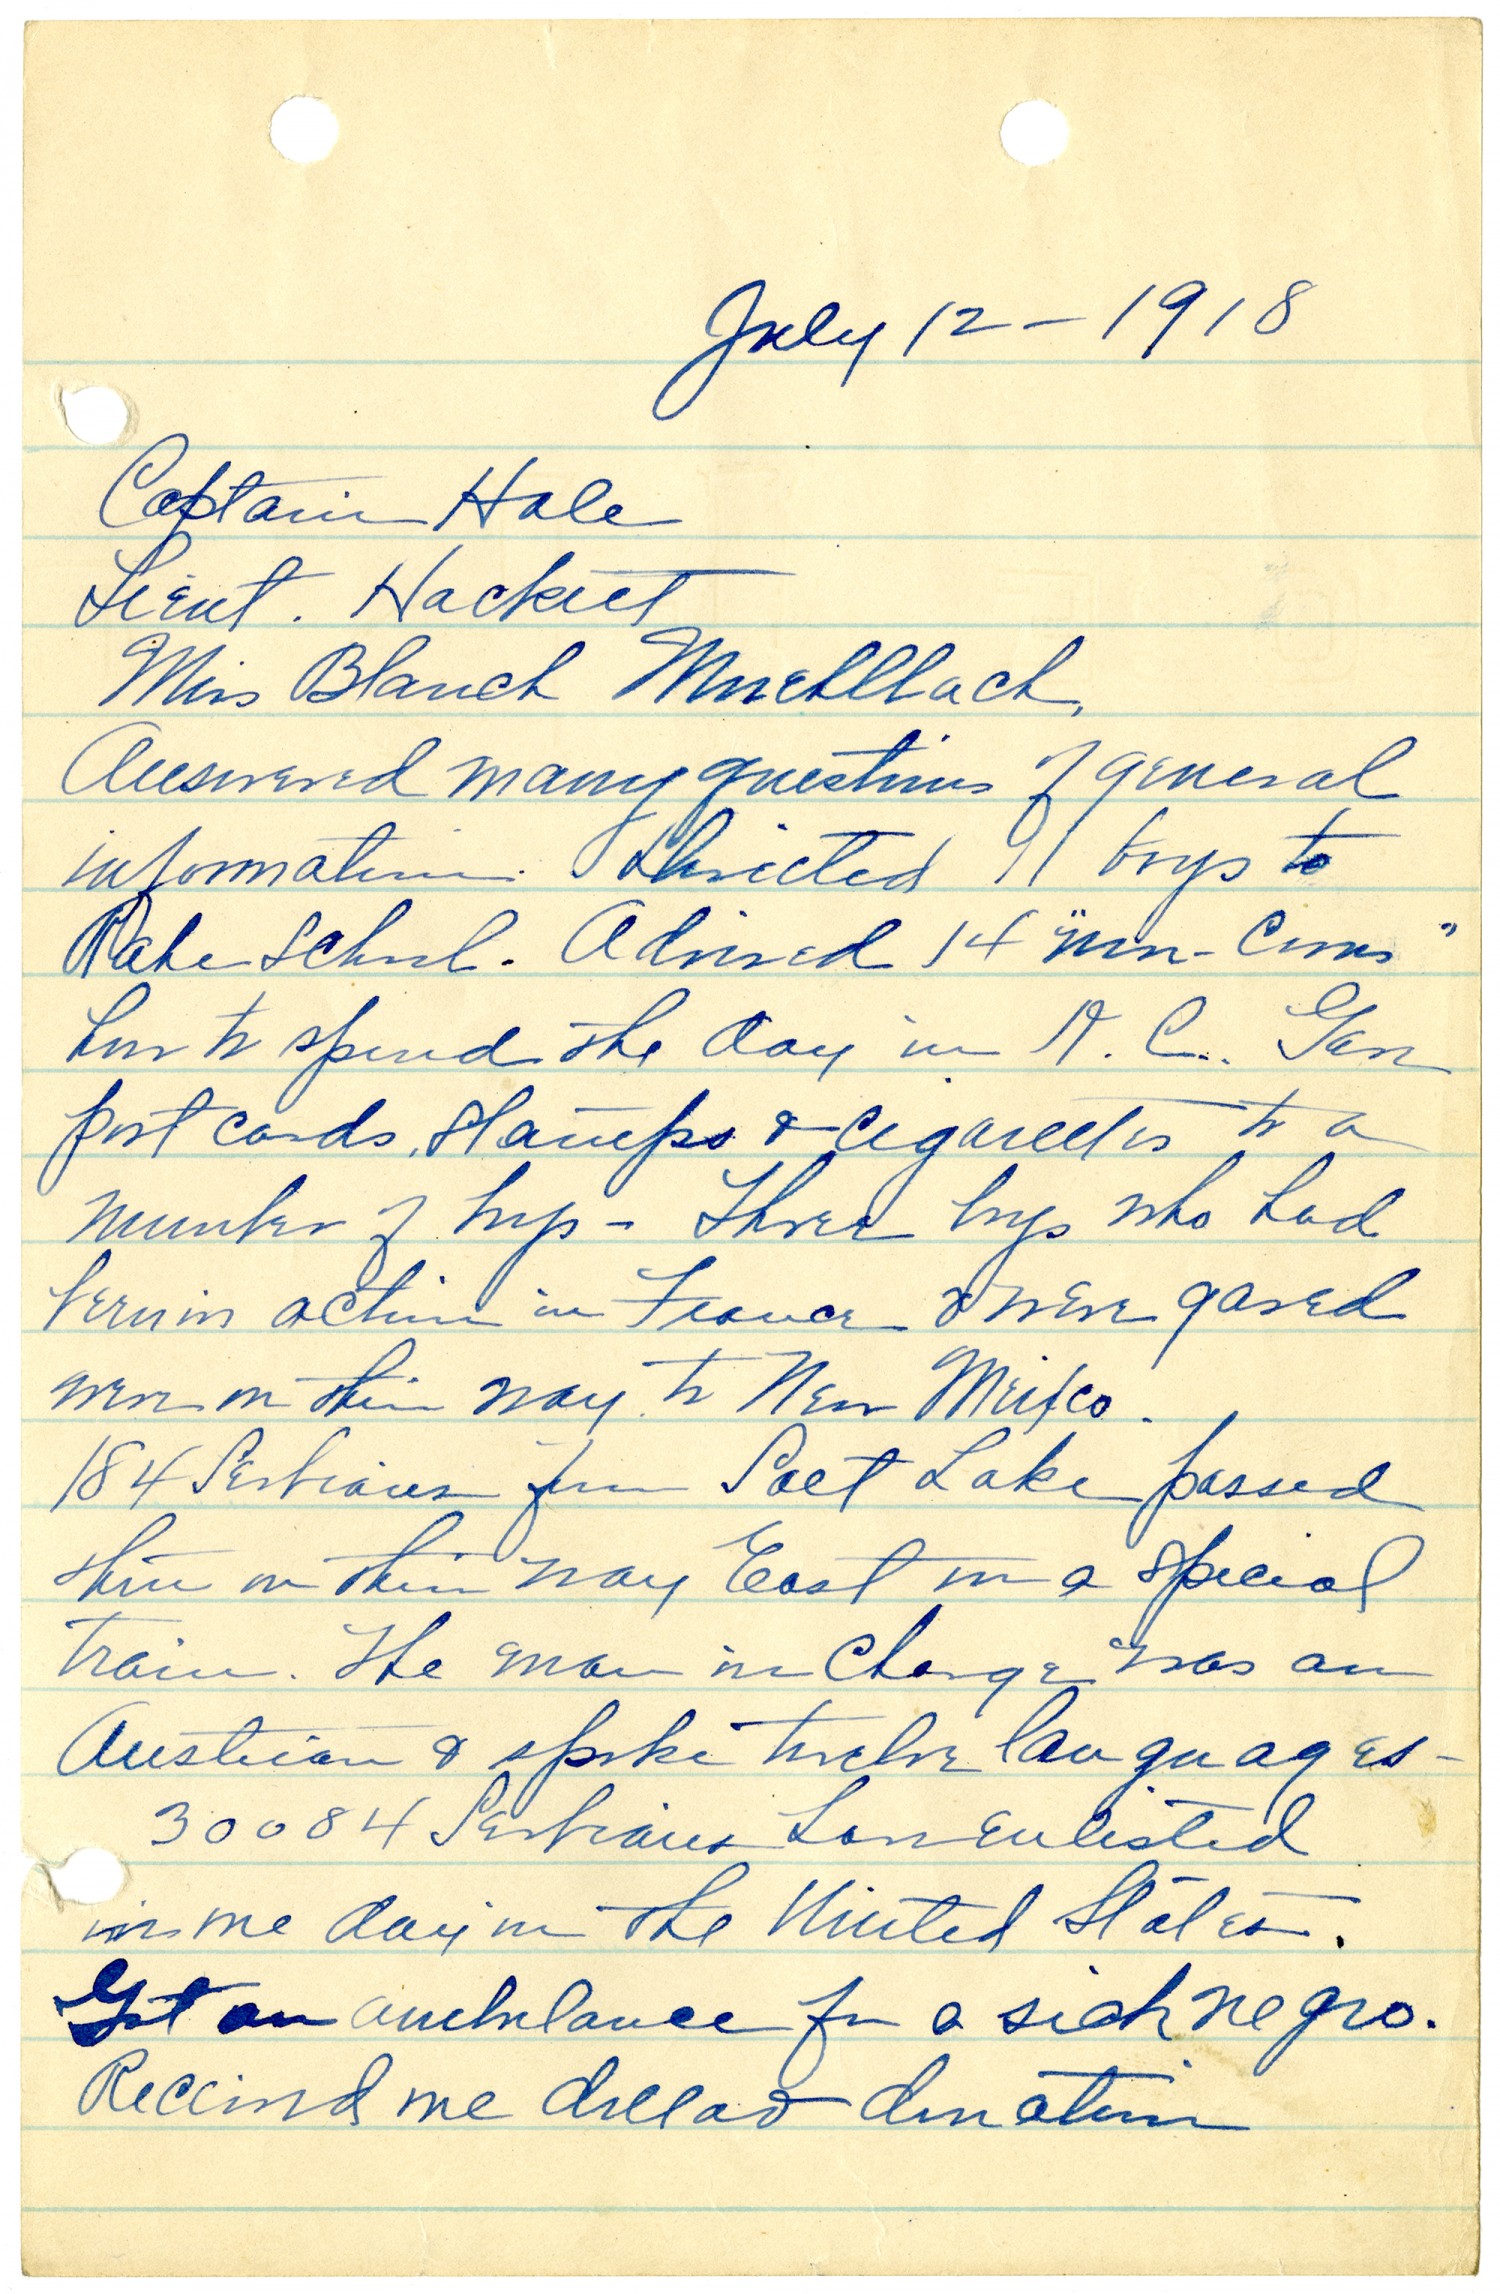 July 12 - 1918
Captain Hale
Lieut. Hackett
Miss Blanch Muehllach,
Answered many questions of general
information. Directed 91 boys to
Rahe School. Advised 14 "non-coms"
how to spend the day in K. C.. Gave
post cards, stamps & cigarettes to a
number of boys - Three boys who had
been in action in France & were gased
were on their way to New Mexico.
184 Serbians from Salt Lake passed
thru on their way East on a special
train. The man in charge was an
Austrian & spoke twelve languages -
30084 Serbians have enlisted
in one day in the United States.
Got an ambulance for a sick negro.
Received one dollar donation